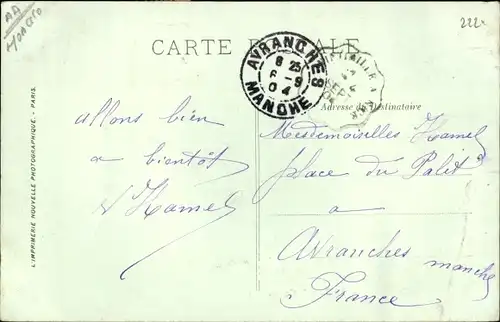 AA
222.
CARTE POSTALE
AVRANCHES
8 25
6 - 9
04
MANCHE
SEPT
Adresse du Destinataire
allons bien
a bientôt
Hamel
Mesdemoiselles Hamel
place du Palet
a
Avranches manche
France
L'IMPRIMERIE NOUVELLE PHOTOGRAPHIQUE - PARIS.